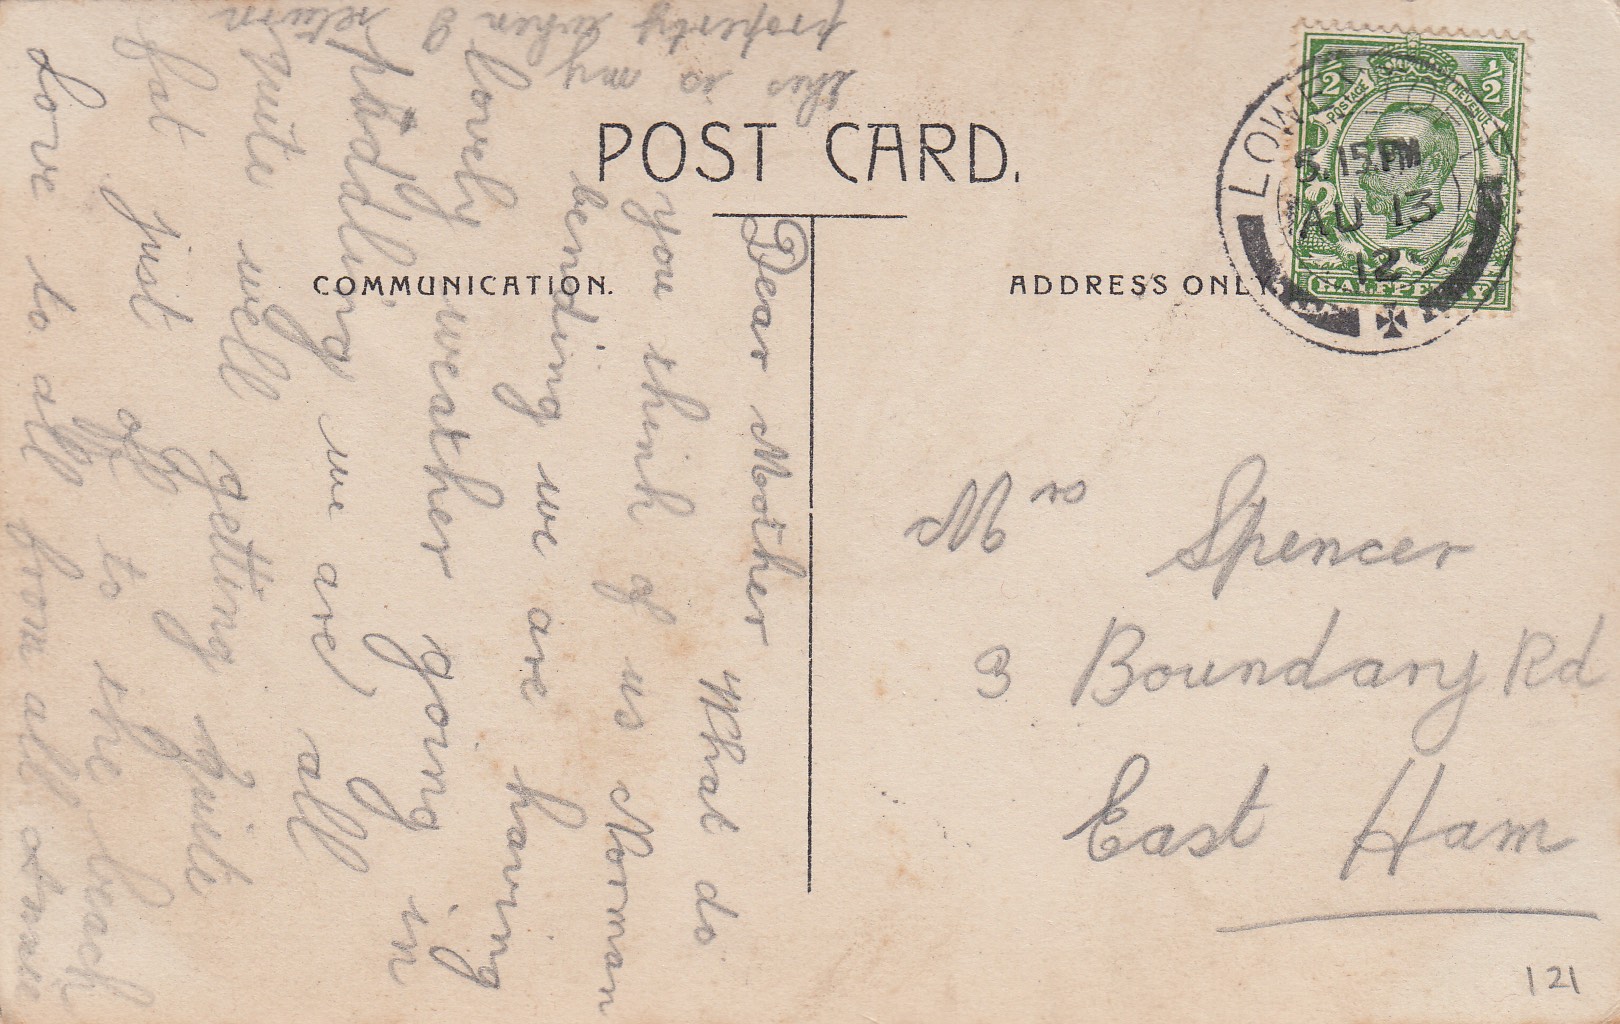 POST CARD.
COMMUNICATION.
ADDRESS ONLY.
Dear Mother What do
you think of us Norman
bending we are having
lovely weather going in
paddling we are all
quite well getting quite
fat just off to the beach
Love to all from all
this is my
property when I return
Mrs Spencer
3 Boundary Rd
East Ham
121
½ ½
POSTAGE REVENUE
HALFPENNY
5.15 PM
AU 13
12